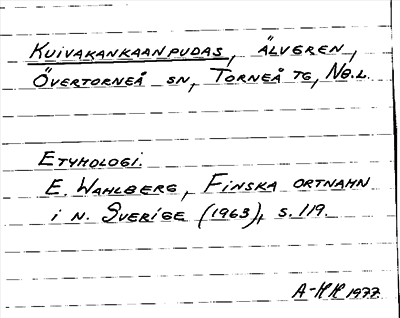 KUIVAKANKAANPUDAS, ÄLVGREN,
ÖVERTORNEÅ SN, TORNEÅ TG, NB.L.
ETYMOLOGI.
E. WAHLBERG, FINSKA ORTNAMN
I N. SVERIGE (1963), S. 119.
A-KH 1977